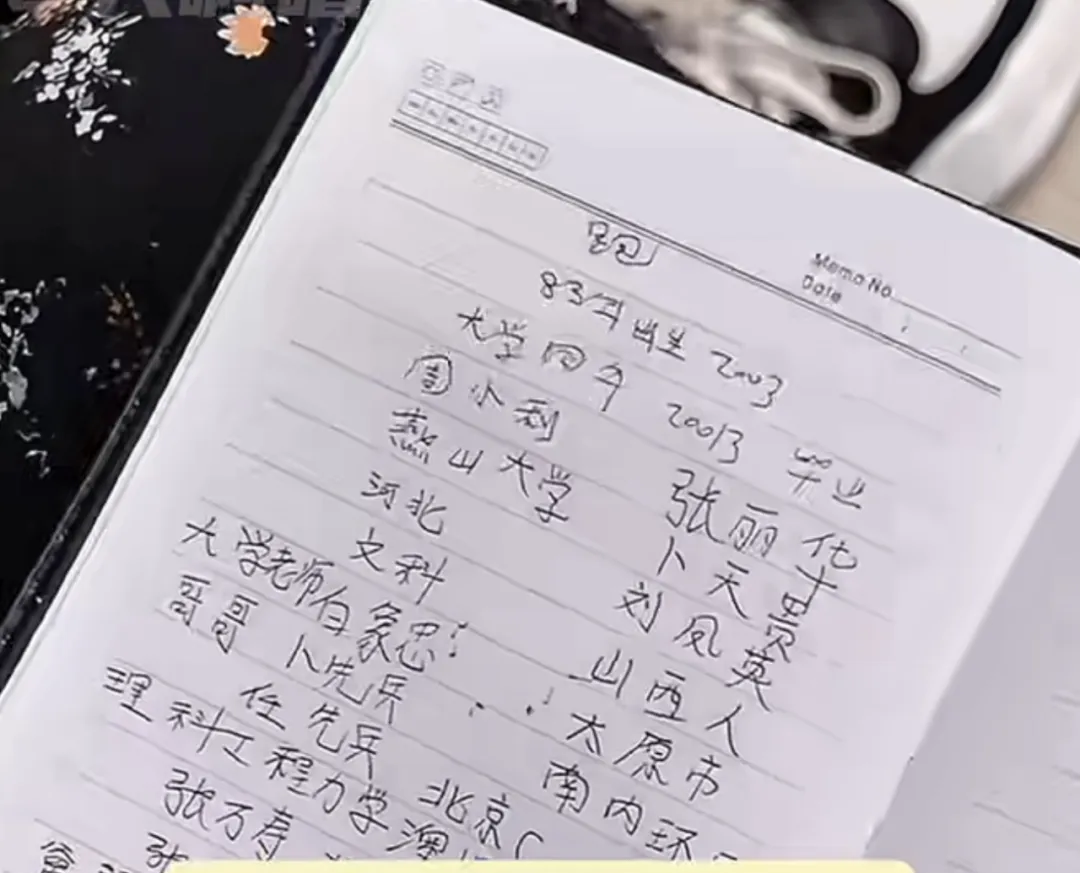 Memo No.
Date
跑
83年出生 2003
大学四年 20013 毕业
周小利 张丽华
燕山大学 卜天贵
河北 刘凤英
文科 山西人
大学老师白象忠: 太原市
哥哥 卜先兵 南内环
任先兵
理科工程力学 北京(
张万寿 澳
张